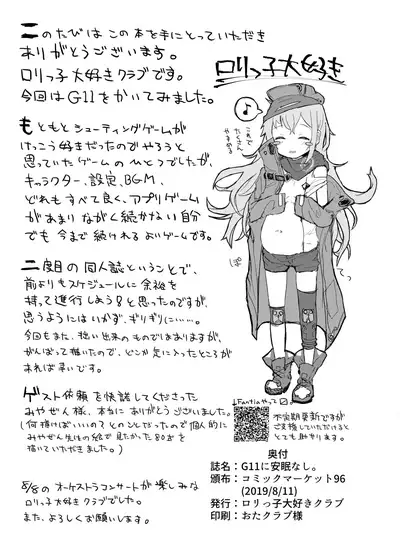 このたびは この本を手にとっていただき
ありがとうございます。
ロリっ子大好きクラブです。
今回は G11をかいてみました。
もともと シューティングゲームが
けっこう好きだったのでやろうと
思っていたゲームの ひとつでしたが、
キャラクター、設定、BGM、
どれも すべて良く、アプリゲーム
があまり ながく続かない自分
でも 今まで続けれる よいゲームです。
二度目の同人誌ということで、
前よりもスケジュールに余裕を
持って進行しよう
と思ったのですが、
思うようにはいかず、ギリギリに……。
今回もまた、拙い出来のものではありますが、
がんばって描いたので、どこか気に入ったところが
あれば幸いです。
ゲスト依頼を快諾してくださった
みやぜん様、本当に ありがとうございました。
(何描けばいいの？とのことだったので個人的に
みやぜん先生の絵で見たかった
を
描いていただきました。)
8/8の オーケストラコンサートが楽しみな
ロリっ子大好きクラブでした。
また、よろしくお願いします。
ロリっ子大好き
♪
これで
たくさん
ぽ
っ
↓Fantiaやって
不定期更新ですが
ご支援していただけると
とても助かります。
奥付
誌名：G11に安眠なし。
頒布：コミックマーケット96
(2019/8/11)
発行：ロリっ子大好きクラブ
印刷：おたクラブ様